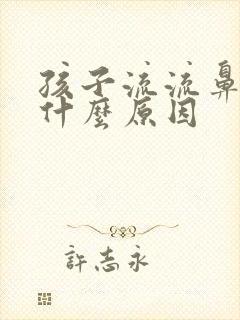 孩子流流鼻
什麼原因
許志永